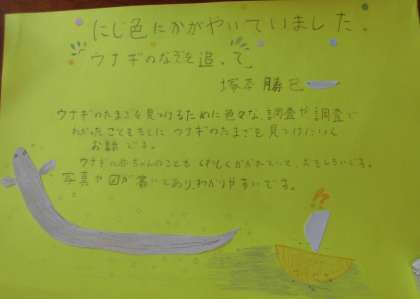 にじ色にかがやいていました。
ウナギのなぞを追って
塚本勝巳
ウナギのたまごを見つけるために色々な調査や調査で
わかったことをもとに ウナギのたまごを見つけにいく
お話です。
ウナギの赤ちゃんのことも くわしくかかれていて、おもしろいです。
写真や図が書いてあり、わかりやすいです。
!?